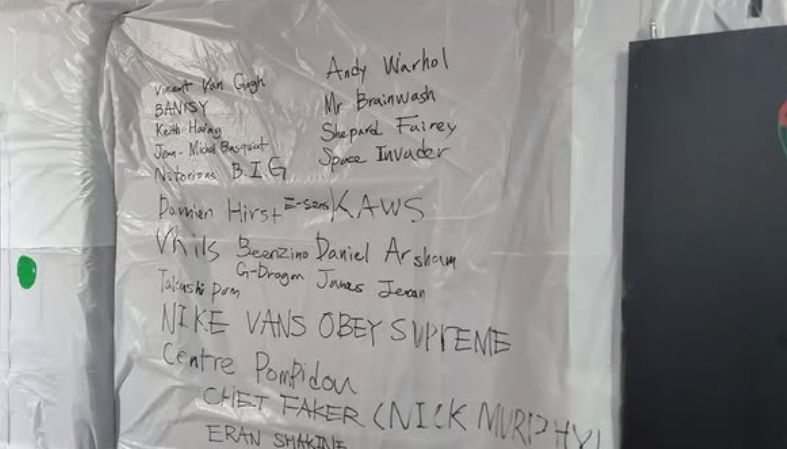 Vincent Van Gogh
Andy Warhol
BANKSY
Mr Brainwash
Keith Haring
Shepard Fairey
Jean-Michel Basquiat
Space Invader
Notorious B.I.G
Damien Hirst E-Sens KAWS
Vhils Beenzino Daniel Arsham
Takashi G-Dragon James Jean
NIKE VANS OBEY SUPREME
Centre Pompidou
CHET FAKER (NICK MURPHY)
ERAN SHAKINE